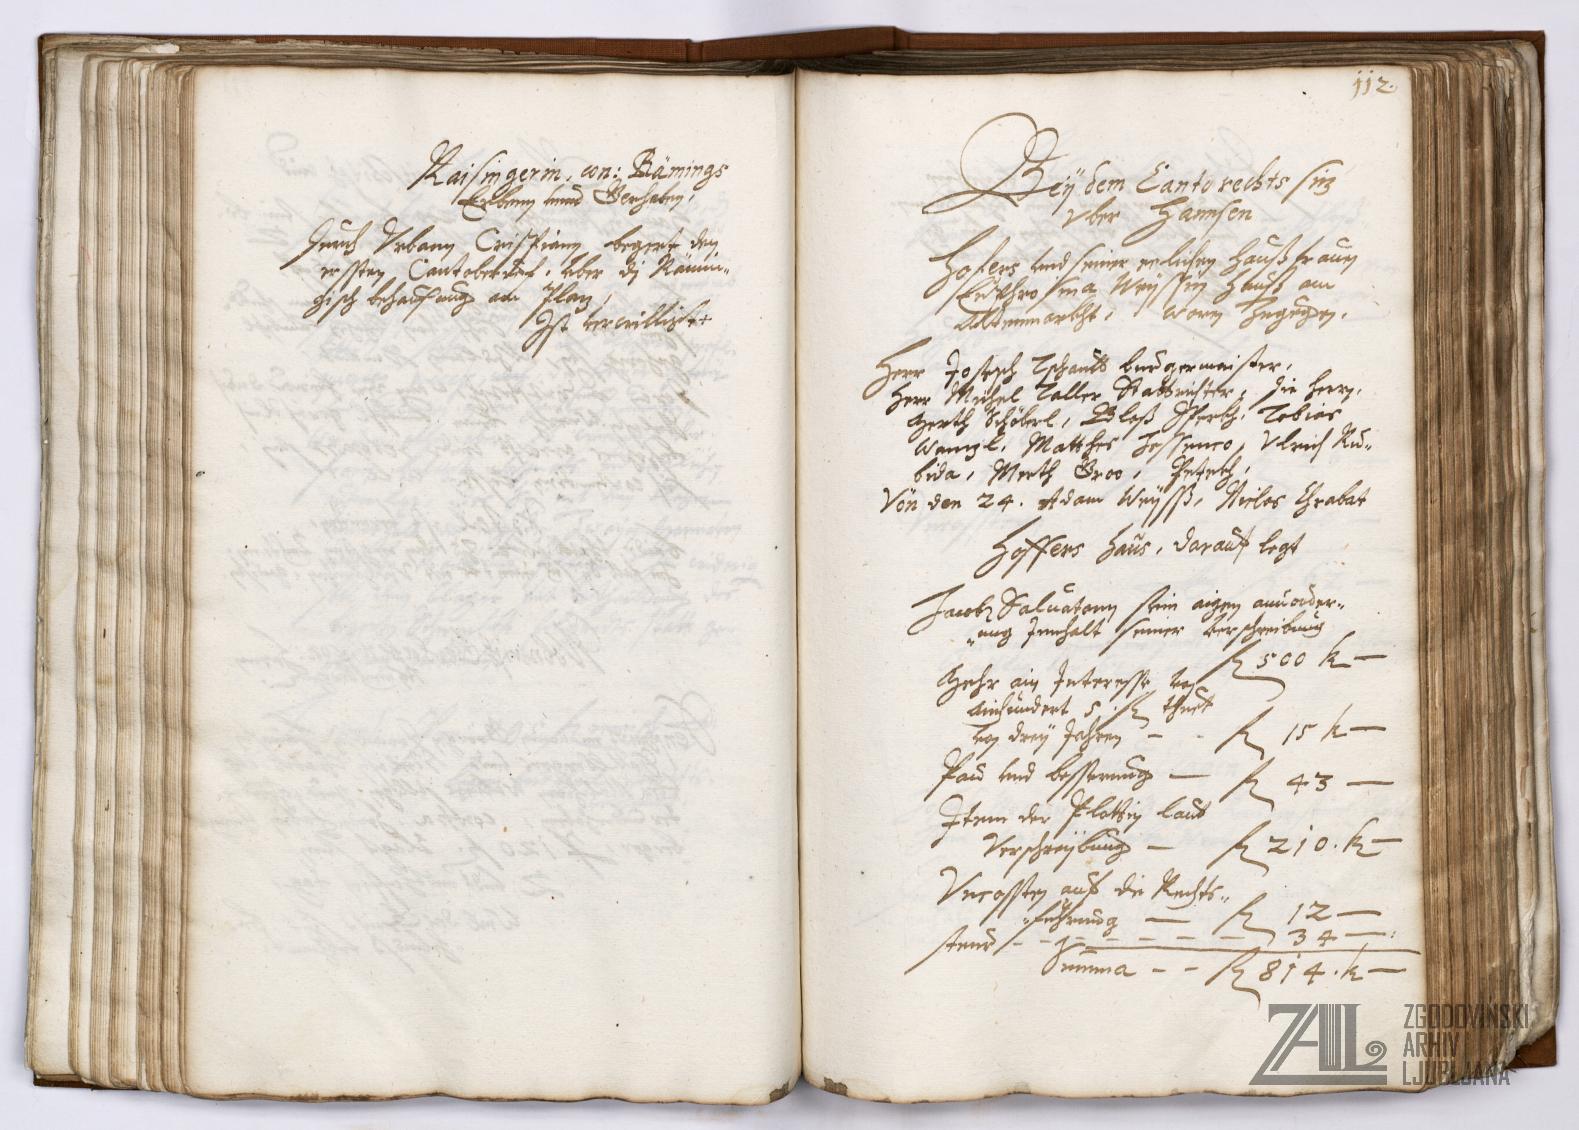 Raisingerin, con: Rämings
Erben unnd Gerhaben,
Durch Urbann Crispiann, begert den
erssten Cantobetdaf. über dj Rämin-
gisch behausung am Plaz,
Ist verwilligt
112.
Beÿ dem Canto rechts siz
vber Hannsen
Hofers und seiner eelichen Haußfrauen
Euphrosina Weÿssin Hauß am
Alttenmarkht, waren zugegen.
Herr Joseph Tschaule burgermaister,
Herr Michel Taller Stattrichter, die herrn
Gerth Schöberl, Blaß Tobias
Wanzl, Matthes Hossenco, Ulrich Ru-
bida, Merth Groo, Petech,
Von den 24. Adam Weÿss, Niclas Chrabat
Hoffers Haus, darauf legt
Jacob Saluatorn sein aigen anuorder-
ung Innhalt seiner verschreibung
fl 500 k —
Mehr ain Interesse von
ainhundert 5 fl thuet
von dreÿ Jahren - - fl 15 k —
Pau und besserung — fl 43 —
Item der Plattin laut
Verschreÿbung — fl 210. k —
Vncossten auf die Rechts-
führung — fl 12 —
steur - - - - - - 34 —
Summa - - fl 814. k —
ZAL
ZGODOVINSKI
ARHIV
LJUBLJANA